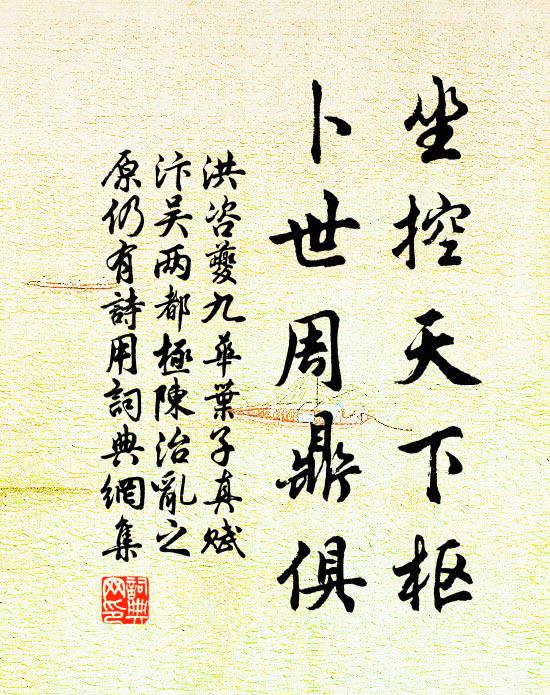 坐控天下枢
卜世周鼎俱
洪咨夔九华葉子真赋
汴吴两都極陳治亂之
原仍有詩用詞典網集
詞典
网印